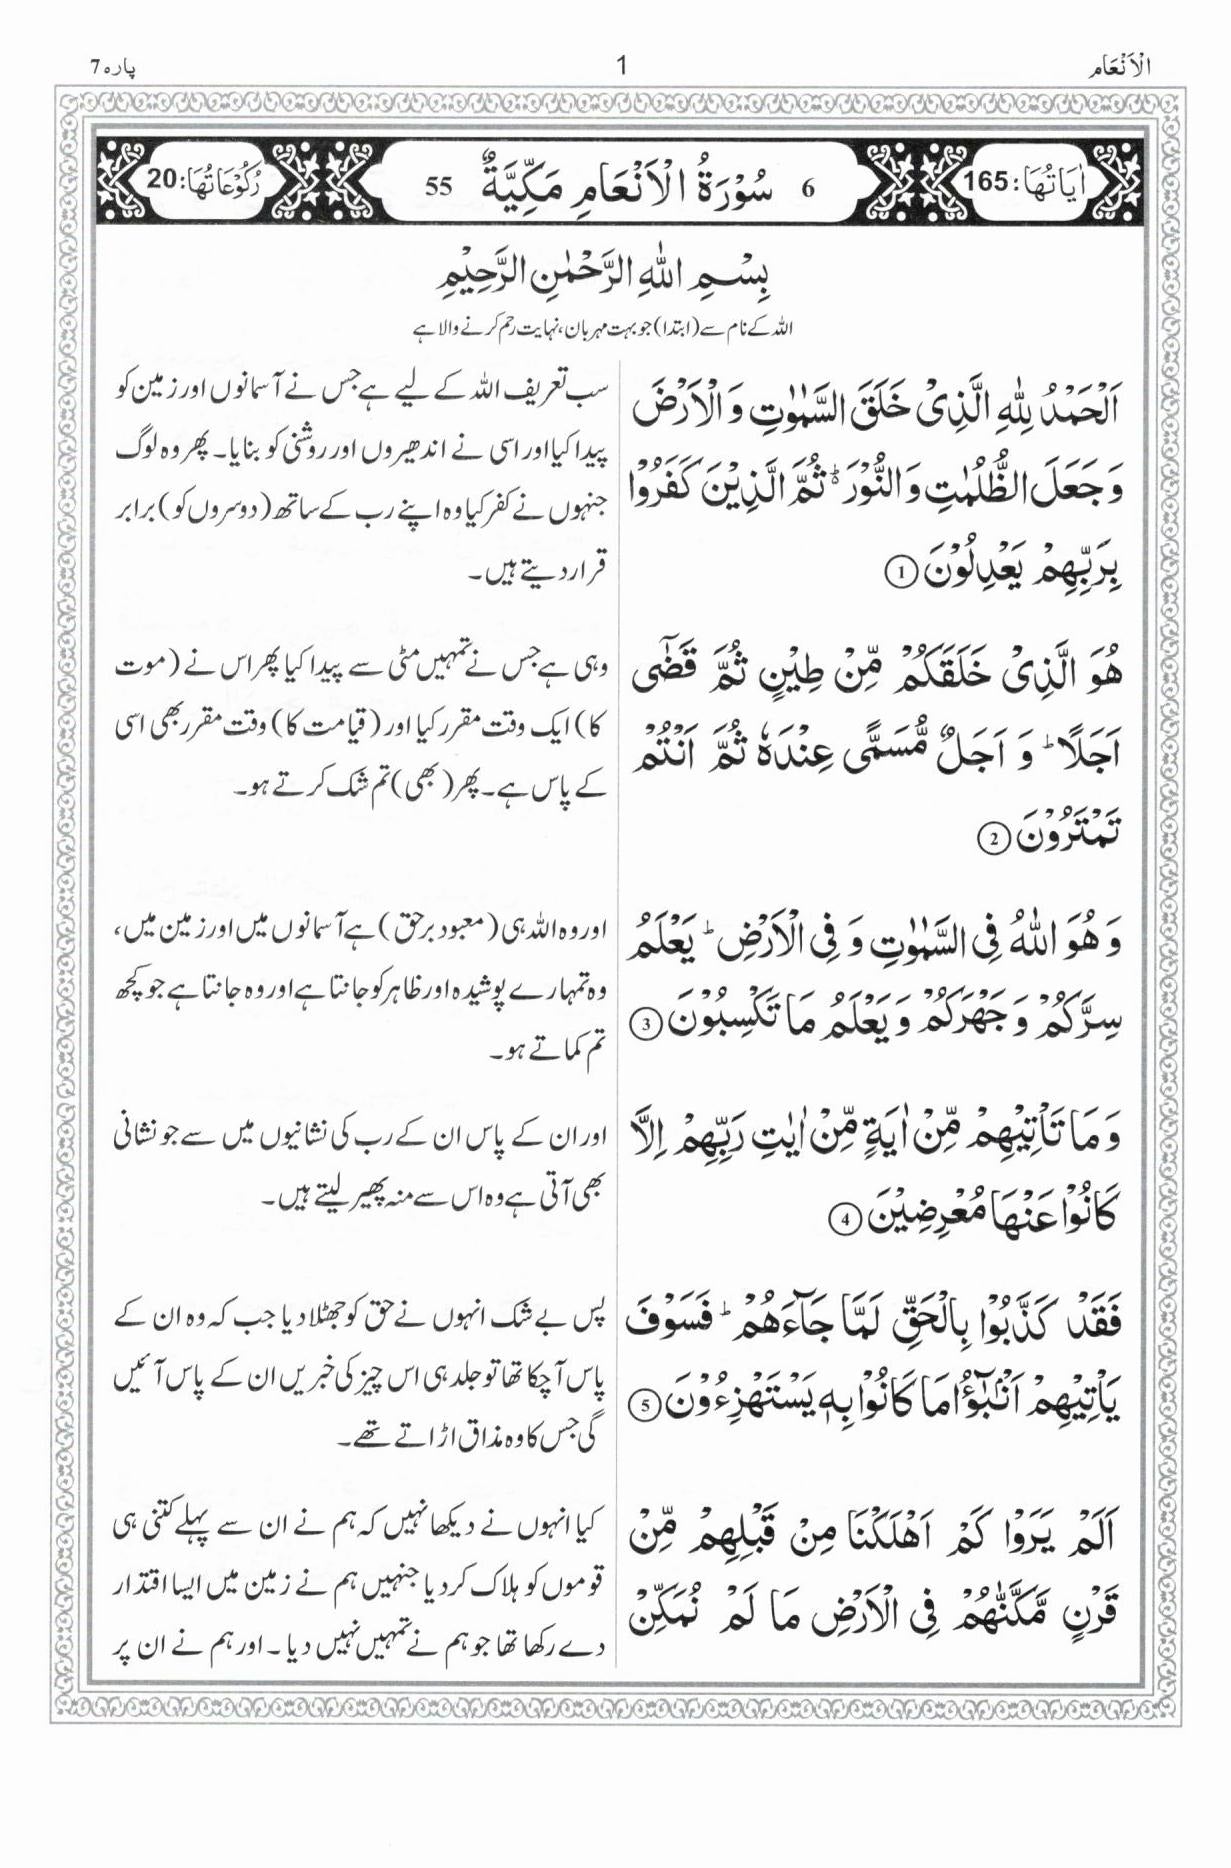 الْاَنْعَام
1
پارہ 7
اٰيَاتُهَا: 165
6 سُوْرَةُ الْاَنْعَامِ مَكِّيَّةٌ 55
رُكُوْعَاتُهَا: 20
بِسْمِ اللّٰهِ الرَّحْمٰنِ الرَّحِيْمِ
اللہ کے نام سے (ابتدا) جو بہت مہربان، نہایت رحم کرنے والا ہے
اَلْحَمْدُ لِلّٰهِ الَّذِيْ خَلَقَ السَّمٰوٰتِ وَ الْاَرْضَ
وَ جَعَلَ الظُّلُمٰتِ وَ النُّوْرَ ؕ ثُمَّ الَّذِيْنَ كَفَرُوْا
بِرَبِّهِمْ يَعْدِلُوْنَ ①
سب تعریف اللہ کے لیے ہے جس نے آسمانوں اور زمین کو
پیدا کیا اور اسی نے اندھیروں اور روشنی کو بنایا۔ پھر وہ لوگ
جنہوں نے کفر کیا وہ اپنے رب کے ساتھ (دوسروں کو) برابر
قرار دیتے ہیں۔
هُوَ الَّذِيْ خَلَقَكُمْ مِّنْ طِيْنٍ ثُمَّ قَضٰٓى
اَجَلًا ؕ وَ اَجَلٌ مُّسَمًّى عِنْدَهٗ ثُمَّ اَنْتُمْ
تَمْتَرُوْنَ ②
وہی ہے جس نے تمہیں مٹی سے پیدا کیا پھر اس نے (موت
کا) ایک وقت مقرر کیا اور (قیامت کا) وقت مقرر بھی اسی
کے پاس ہے۔ پھر (بھی) تم شک کرتے ہو۔
وَ هُوَ اللّٰهُ فِي السَّمٰوٰتِ وَ فِي الْاَرْضِ ؕ يَعْلَمُ
سِرَّكُمْ وَ جَهْرَكُمْ وَ يَعْلَمُ مَا تَكْسِبُوْنَ ③
اور وہ اللہ ہی (معبود برحق) ہے آسمانوں میں اور زمین میں،
وہ تمہارے پوشیدہ اور ظاہر کو جانتا ہے اور وہ جانتا ہے جو کچھ
تم کماتے ہو۔
وَ مَا تَاْتِيْهِمْ مِّنْ اٰيَةٍ مِّنْ اٰيٰتِ رَبِّهِمْ اِلَّا
كَانُوْا عَنْهَا مُعْرِضِيْنَ ④
اور ان کے پاس ان کے رب کی نشانیوں میں سے جو نشانی
بھی آتی ہے وہ اس سے منہ پھیر لیتے ہیں۔
فَقَدْ كَذَّبُوْا بِالْحَقِّ لَمَّا جَآءَهُمْ ؕ فَسَوْفَ
يَاْتِيْهِمْ اَنْۢبٰٓؤُا مَا كَانُوْا بِهٖ يَسْتَهْزِءُوْنَ ⑤
پس بے شک انہوں نے حق کو جھٹلا دیا جب کہ وہ ان کے
پاس آ چکا تھا تو جلد ہی اس چیز کی خبریں ان کے پاس آئیں
گی جس کا وہ مذاق اڑاتے تھے۔
اَلَمْ يَرَوْا كَمْ اَهْلَكْنَا مِنْ قَبْلِهِمْ مِّنْ
قَرْنٍ مَّكَّنّٰهُمْ فِي الْاَرْضِ مَا لَمْ نُمَكِّنْ
کیا انہوں نے دیکھا نہیں کہ ہم نے ان سے پہلے کتنی ہی
قوموں کو ہلاک کر دیا جنہیں ہم نے زمین میں ایسا اقتدار
دے رکھا تھا جو ہم نے تمہیں نہیں دیا۔ اور ہم نے ان پر